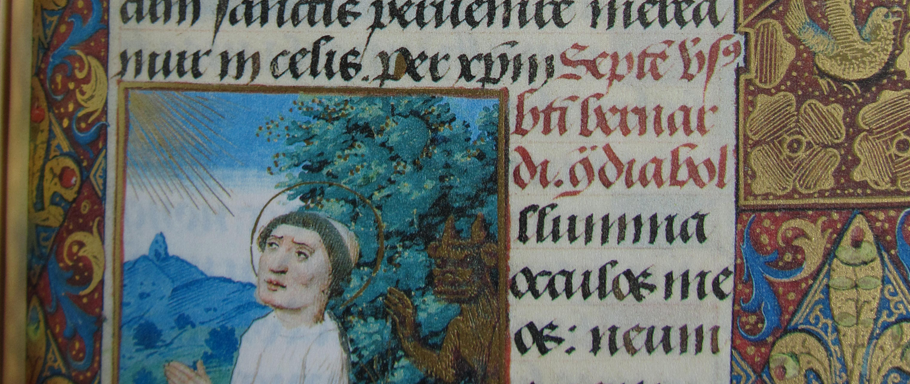 cum sanctis peruenire merea
mur in celis. Per xp̄m Septē v̄sꝰ
bt̄i bernar
di. q̄ diabol
Illumina
occulos me
os: ne um